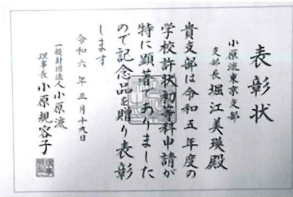 表彰状
小原流東京支部
支部長 堀江美瑛殿
貴支部は令和五年度の
学校許状初等科申請が
特に顕著でありました
ので記念品を贈り表彰
します
令和六年三月十九日
一般財団法人小原流
理事長 小原規容子